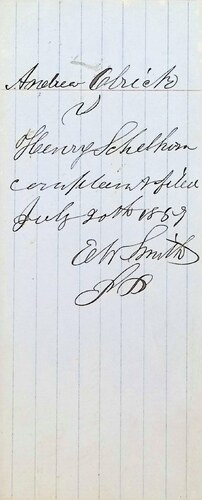 Andrew Olrick
v
Henry Schelhorn
complaint filed
July 20th 1859
E W Smith
J P